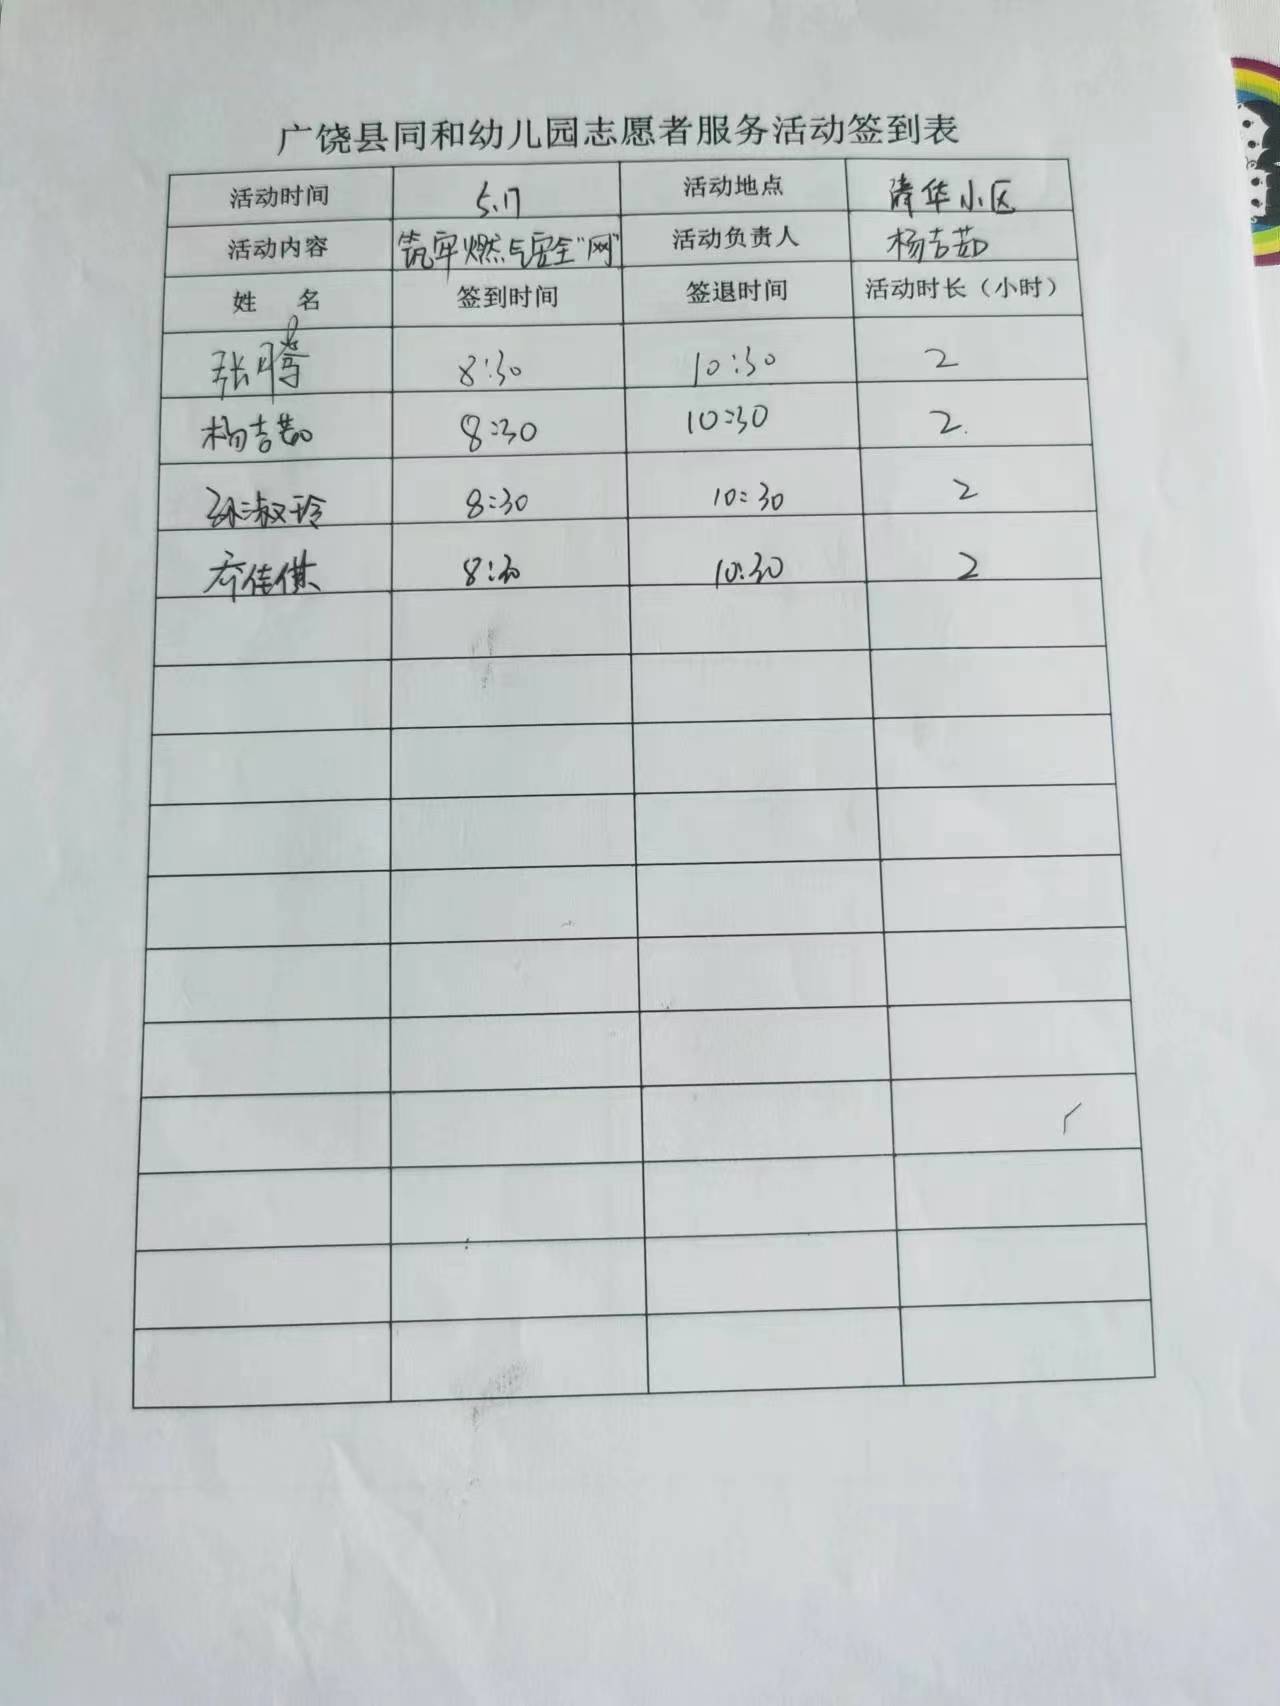 广饶县同和幼儿园志愿者服务活动签到表
活动时间 5.17 活动地点 清华小区
活动内容 筑牢燃气安全"网" 活动负责人 杨吉茹
姓 名 签到时间 签退时间 活动时长（小时）
张腾 8:30 10:30 2
杨吉茹 8:30 10:30 2.
孙淑玲 8:30 10:30 2
乔佳琪 8:30 10:30 2